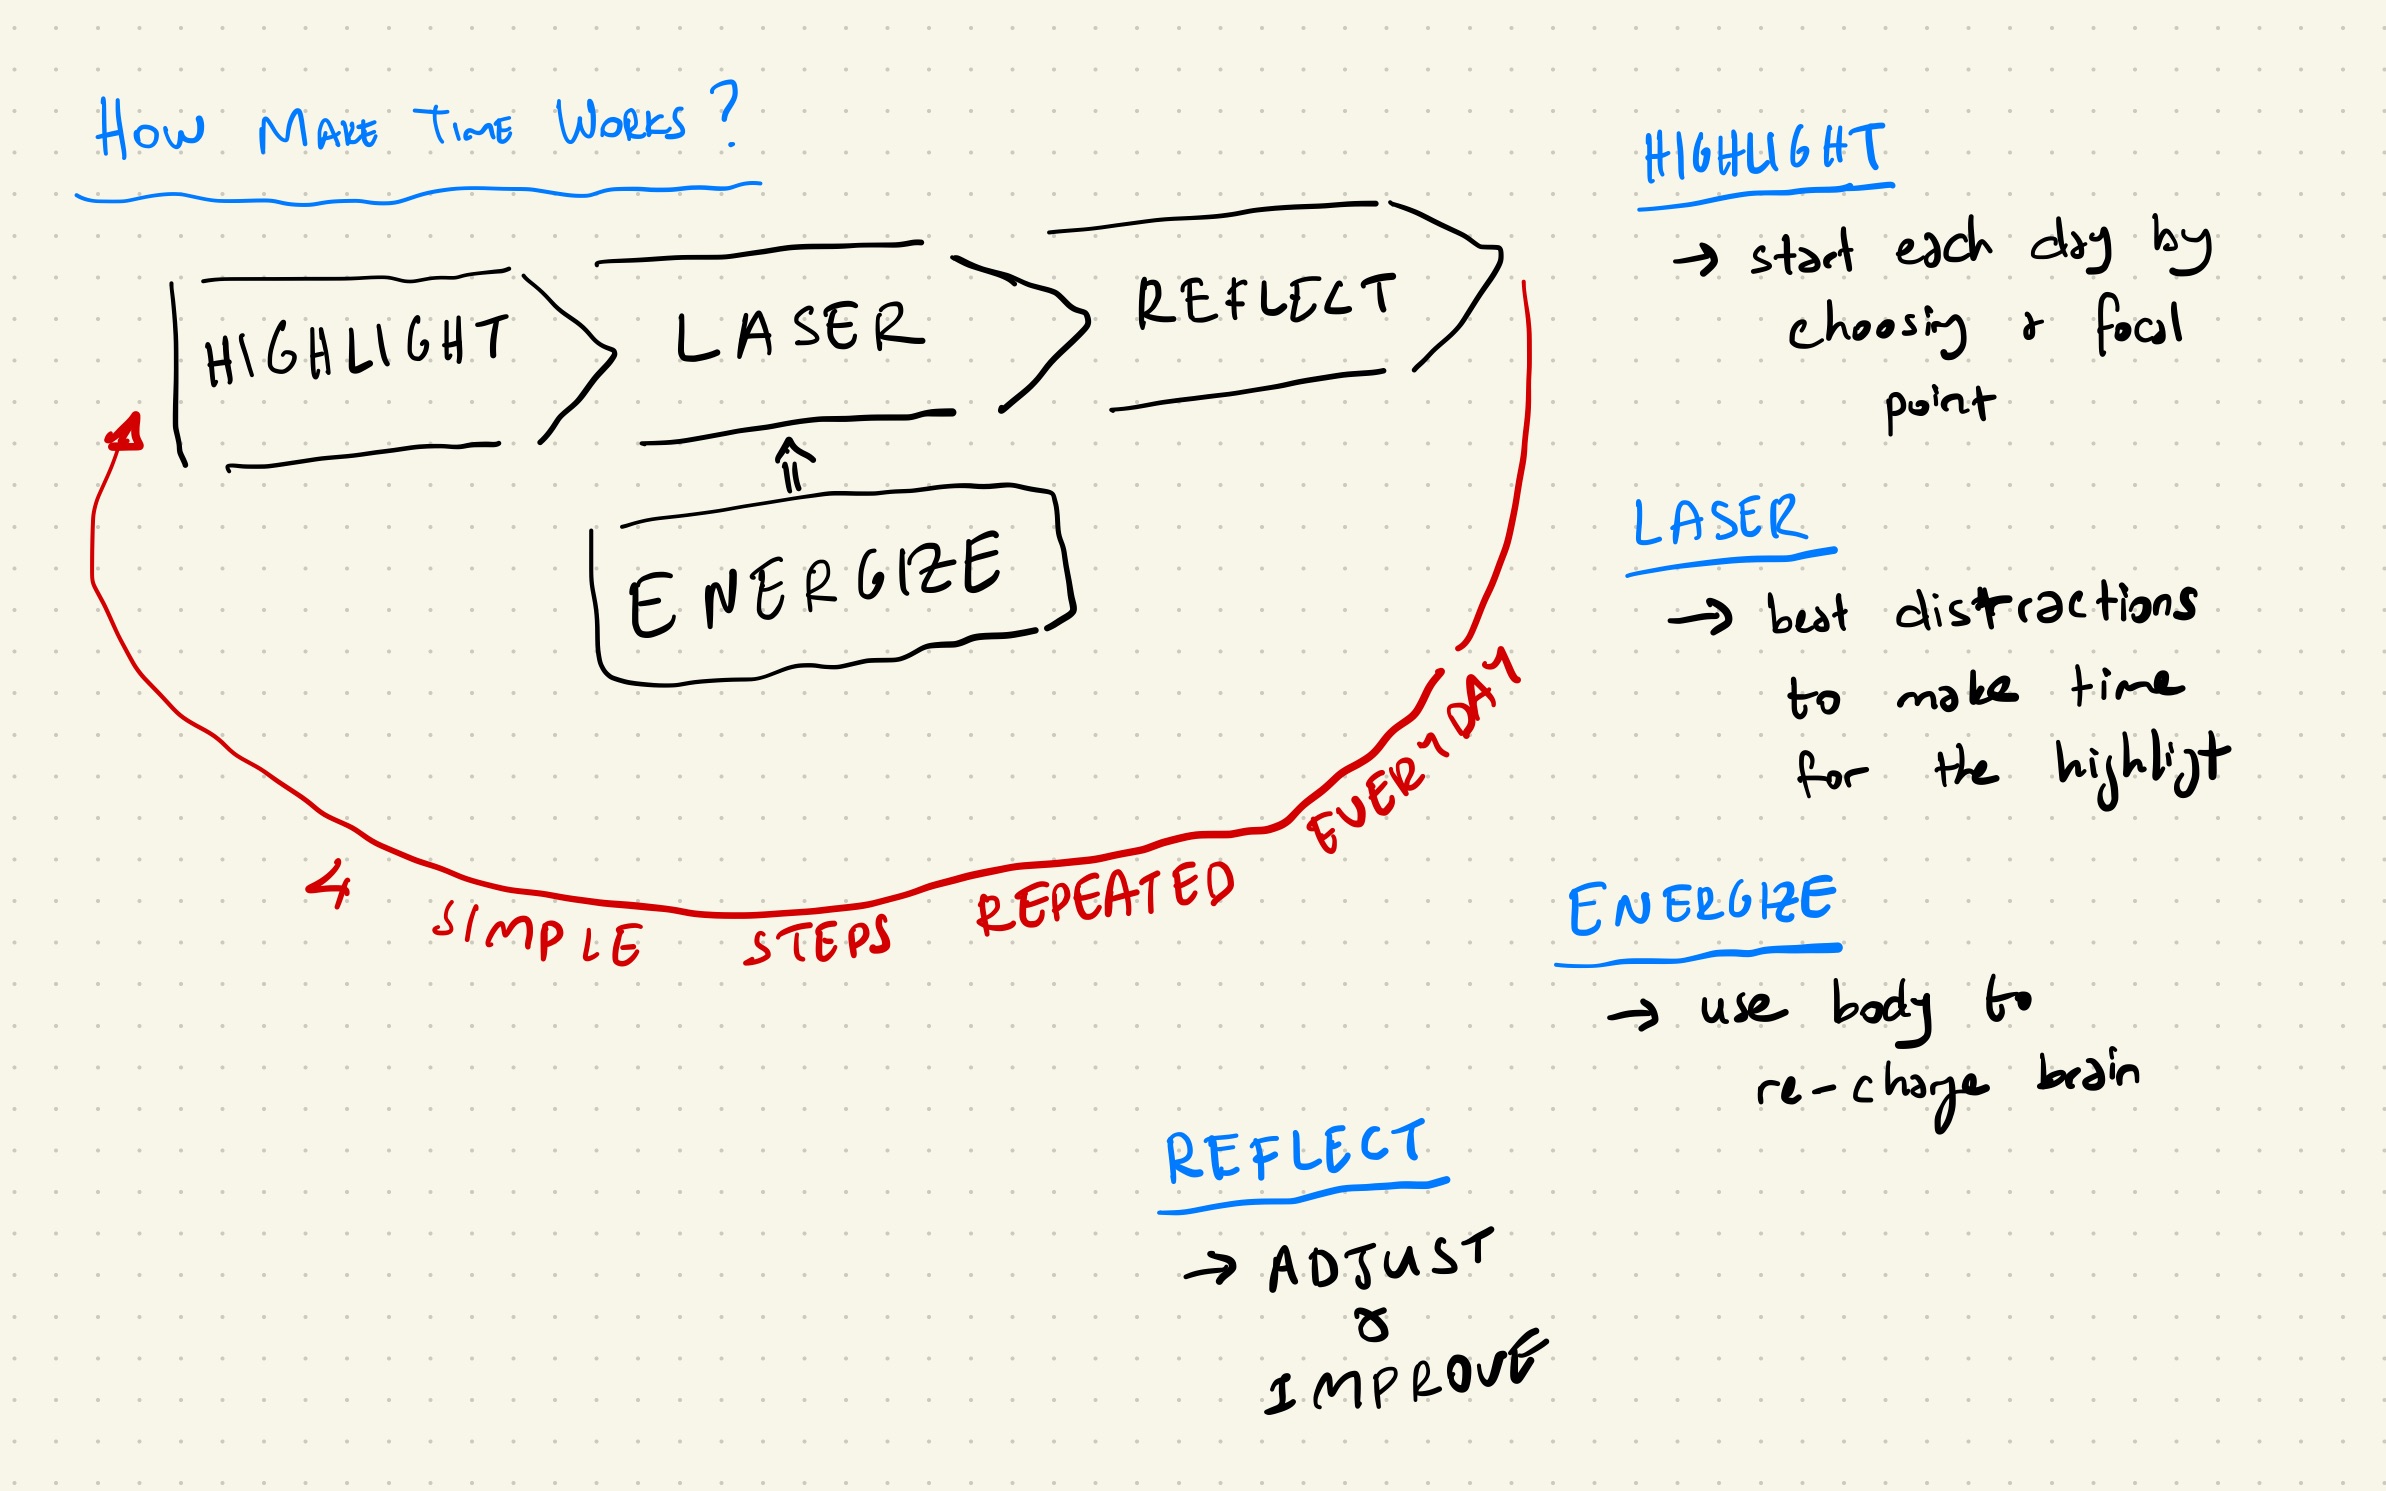 How Make Time Works?
HIGHLIGHT
LASER
REFLECT
ENERGIZE
4 SIMPLE STEPS REPEATED EVERYDAY
HIGHLIGHT
→ start each day by
choosing a focal
point
LASER
→ beat distractions
to make time
for the highligt
ENERGIZE
→ use body to
re-charge brain
REFLECT
→ ADJUST
&
IMPROVE